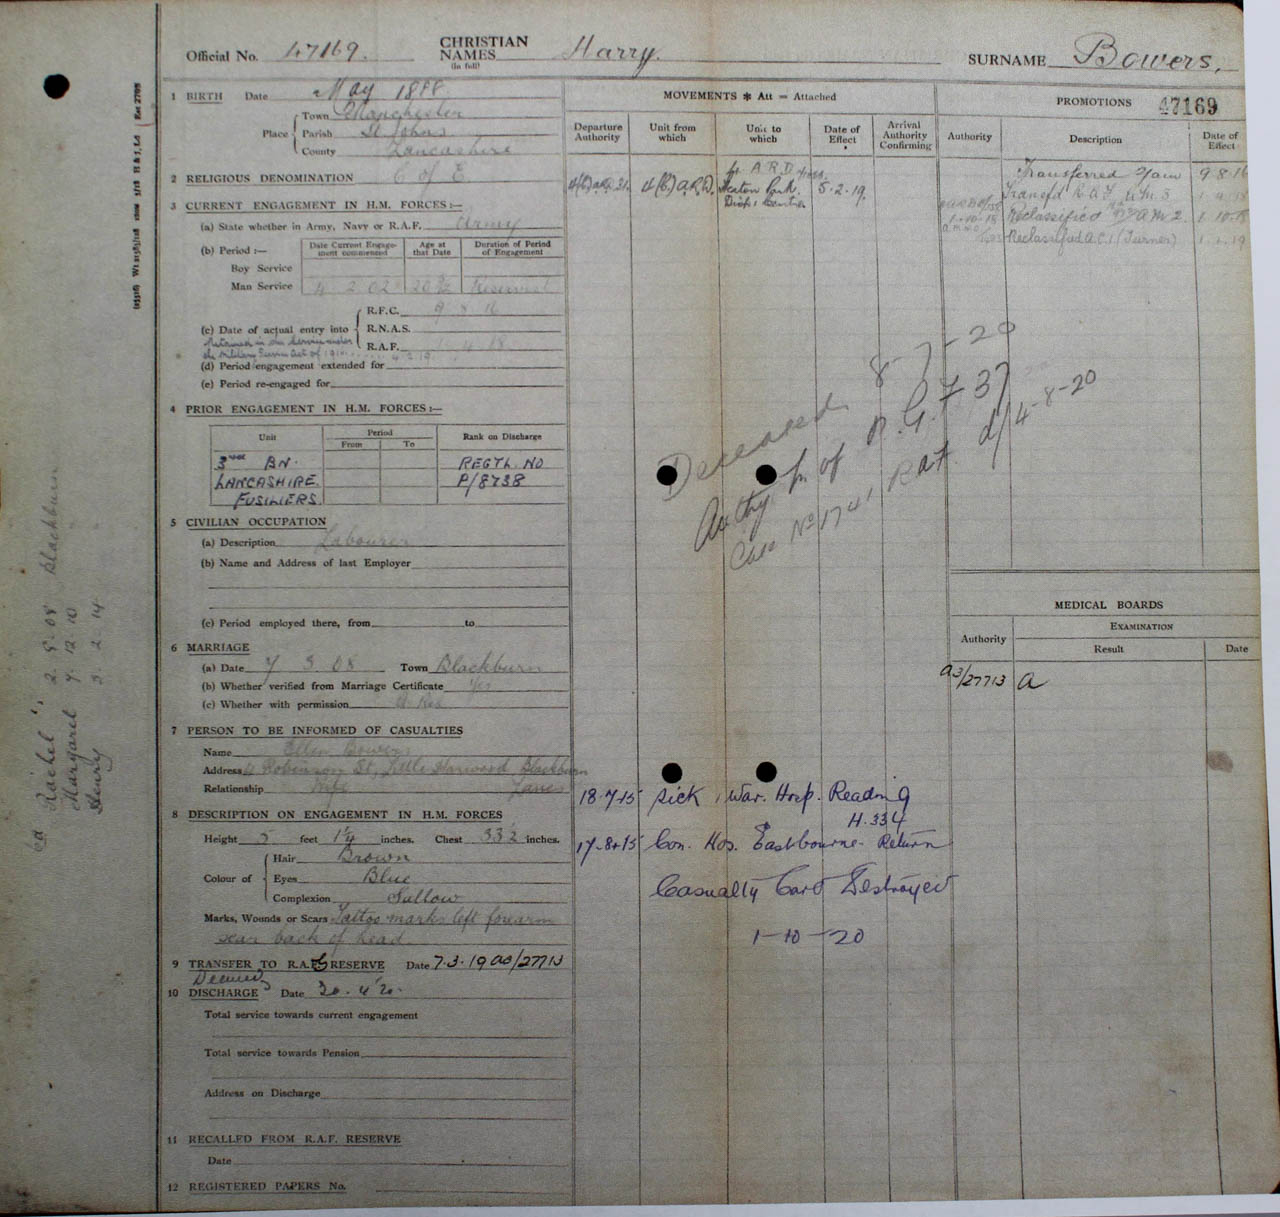 Official No. 47169. CHRISTIAN NAMES (In full) Harry. SURNAME Bowers.
1 BIRTH Date May 1888
Place Town Manchester
Parish St Johns
County Lancashire
2 RELIGIOUS DENOMINATION C of E
3 CURRENT ENGAGEMENT IN H.M. FORCES :—
(a) State whether in Army, Navy or R.A.F. Army
(b) Period :—
Date Current Engagement commenced Age at that Date Duration of Period of Engagement
Boy Service
Man Service 4 2 02 Reservist
(c) Date of actual entry into
R.F.C. 9 8 16
R.N.A.S.
R.A.F. 1 4 18
Retained in the Service under
the Military Service Act of 1916
(d) Period engagement extended for
(e) Period re-engaged for
4 PRIOR ENGAGEMENT IN H.M. FORCES :—
Unit Period Rank on Discharge
From To
3RD BN. REGTL. NO
LANCASHIRE P/8738
FUSILIERS
5 CIVILIAN OCCUPATION
(a) Description Labourer
(b) Name and Address of last Employer
(c) Period employed there, from to
6 MARRIAGE
(a) Date 7 3 08 Town Blackburn
(b) Whether verified from Marriage Certificate Yes
(c) Whether with permission
7 PERSON TO BE INFORMED OF CASUALTIES
Name Ellen Bowers
Address Robinson St, Little Harwood Blackburn
Relationship Wife Lancs
8 DESCRIPTION ON ENGAGEMENT IN H.M. FORCES
Height 5 feet 1¼ inches. Chest 33½ inches.
Colour of Hair Brown
Eyes Blue
Complexion Sallow
Marks, Wounds or Scars Tattoo marks left forearm
scar back of head
9 TRANSFER TO R.A.F. RESERVE Date 7.3.19 ao/27713
Deemed
10 DISCHARGE Date 30.4.20.
Total service towards current engagement
Total service towards Pension
Address on Discharge
11 RECALLED FROM R.A.F. RESERVE
Date
12 REGISTERED PAPERS No.
MOVEMENTS * Att = Attached
Departure Authority Unit from which Unit to which Date of Effect * Arrival Authority Confirming
A.R.D.
4(B) A.R.D. Heaton Park. 5.2.19.
Disp. Centre
Deceased 8-7-20
Authy
Case No 1741 RAF d/4-8-20
18-7-15 Sick, War. Hosp. Reading
H.334
17-8-15 Con. Hos. Eastbourne. Return
Casualty Card Destroyed
1-10-20
PROMOTIONS 47169
Authority Description Date of Effect
Transferred 2/am 9-8-16
Transfd R.A.F. A.M.3 1 4 18
1-10-18 Reclassified A.M 2. 1.10.18
Reclassified A.C.1 (Turner) 1.1.19
MEDICAL BOARDS
Authority EXAMINATION
Result Date
A3/27713 A
Rachel 2. 9. 08 Blackburn
Margaret 7. 12. 10
Henry 3. 2. 14